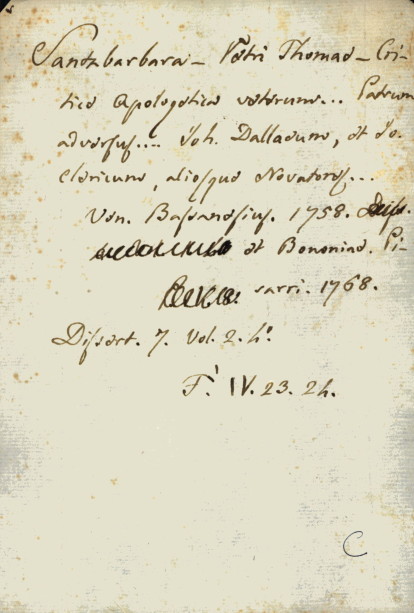 Santabarbara – Petri Thomae – Cri-
tica Apologetica veterum... Patrum
adversus.... Joh. Dallaeum, et Jo.
Clericum, aliosque Novatores...
Ven. Bassanesius. 1758.
et Bononiae. Pi-
sarri. 1768.
Dissert. 7. Vol. 2. 4°.
F. IV. 23. 24.
C